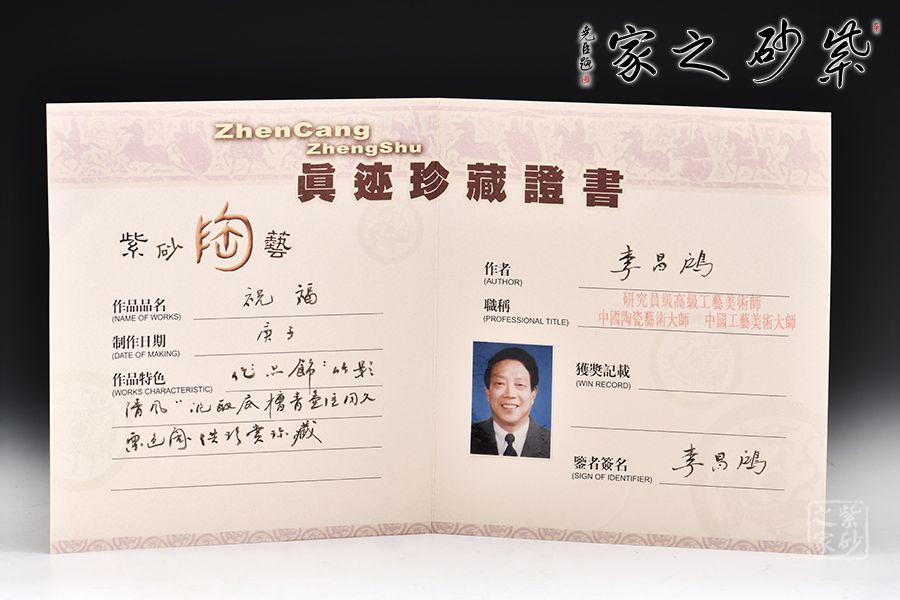 紫砂之家
堯臣題
ZhenCang
ZhengShu
眞迹珍藏證書
紫砂陶藝
作品品名 祝福
(NAME OF WORKS)
制作日期 庚子
(DATE OF MAKING)
作品特色 作品飾"竹影
(WORKS CHARACTERISTIC)
清風"泥取底槽青壺
珍賞珍藏
作者 李昌鴻
(AUTHOR)
職稱 研究員级高級工藝美術師
(PROFESSIONAL TITLE) 中國陶瓷藝術大師 中國工藝美術大師
獲獎記載
(WIN RECORD)
鑒者簽名 李昌鴻
(SIGN OF IDENTIFIER)
紫砂之家